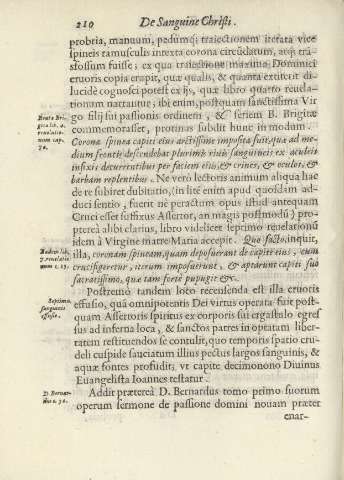 210 De Sanguine Christi.
probria, manuum, pedumq; traiectionem iterata vice
spineis ramusculis intexta corona circũdatum, atq; trã-
sfossum fuisse; ex qua traiectione maxima Dominici
cruoris copia erupit, quæ qualis, & quanta extiterit di-
lucidè cognosci potest ex ijs, quæ libro quarto reuela-
tionum narrantur; ibi enim, postquam sanctissima Vir-
go filij sui passionis ordinem, & seriem B. Brigitæ
commemorasset, protinus subdit hunc in modum.
Corona spinea capiti eius arctissimè imposita fuit, quæ ad me-
dium frontis descendebat plurimis riuis sanguinis ex aculeis
infixis decurrentibus per faciem eius, & crines, & oculos, &
barbam replentibus. Ne verò lectoris animum aliqua hac
de re subiret dubitatio, (in lite enim apud quosdam ad-
duci sentio, fuerit ne peractum opus istud antequam
Cruci esset suffixus Assertor, an magis postmodũ) pro-
ptereà alibi clarius, libro videlicet septimo reuelationũ
idem à Virgine matre Maria accepit. Quo facto, inquit,
illa, coronam spineam, quam deposuerant de capite eius, cum
crucifigeretur, iterum imposuerunt, & aptarunt capiti suo
sacratissimo, quæ tam fortè pupugit &c.
Postremò tandem loco recensenda est illa cruoris
effusio, quâ omnipotenti Dei virtus operata fuit post-
quam Assertoris spiritus ex corporis sui ergastulo egres
sus ad inferna loca, & sanctos patres in optatam liber-
tatem restituendos se contulit, quo temporis spatio cru-
deli cuspide sauciatum illius pectus largos sanguinis, &
aquæ fontes profudit, vt capite decimonono Diuinus
Euangelista Ioannes testatur.
Addit prætereà D. Bernardus tomo primo suorum
operum sermone de passione domini nouam præter
enar-
Beata Bri-
gita lib. 4.
reuelatio-
num cap.
70.
Eadem lib.
7. reuelatio
num c. 15.
Septima
sanguinis
effusio.
D. Bernar-
dus